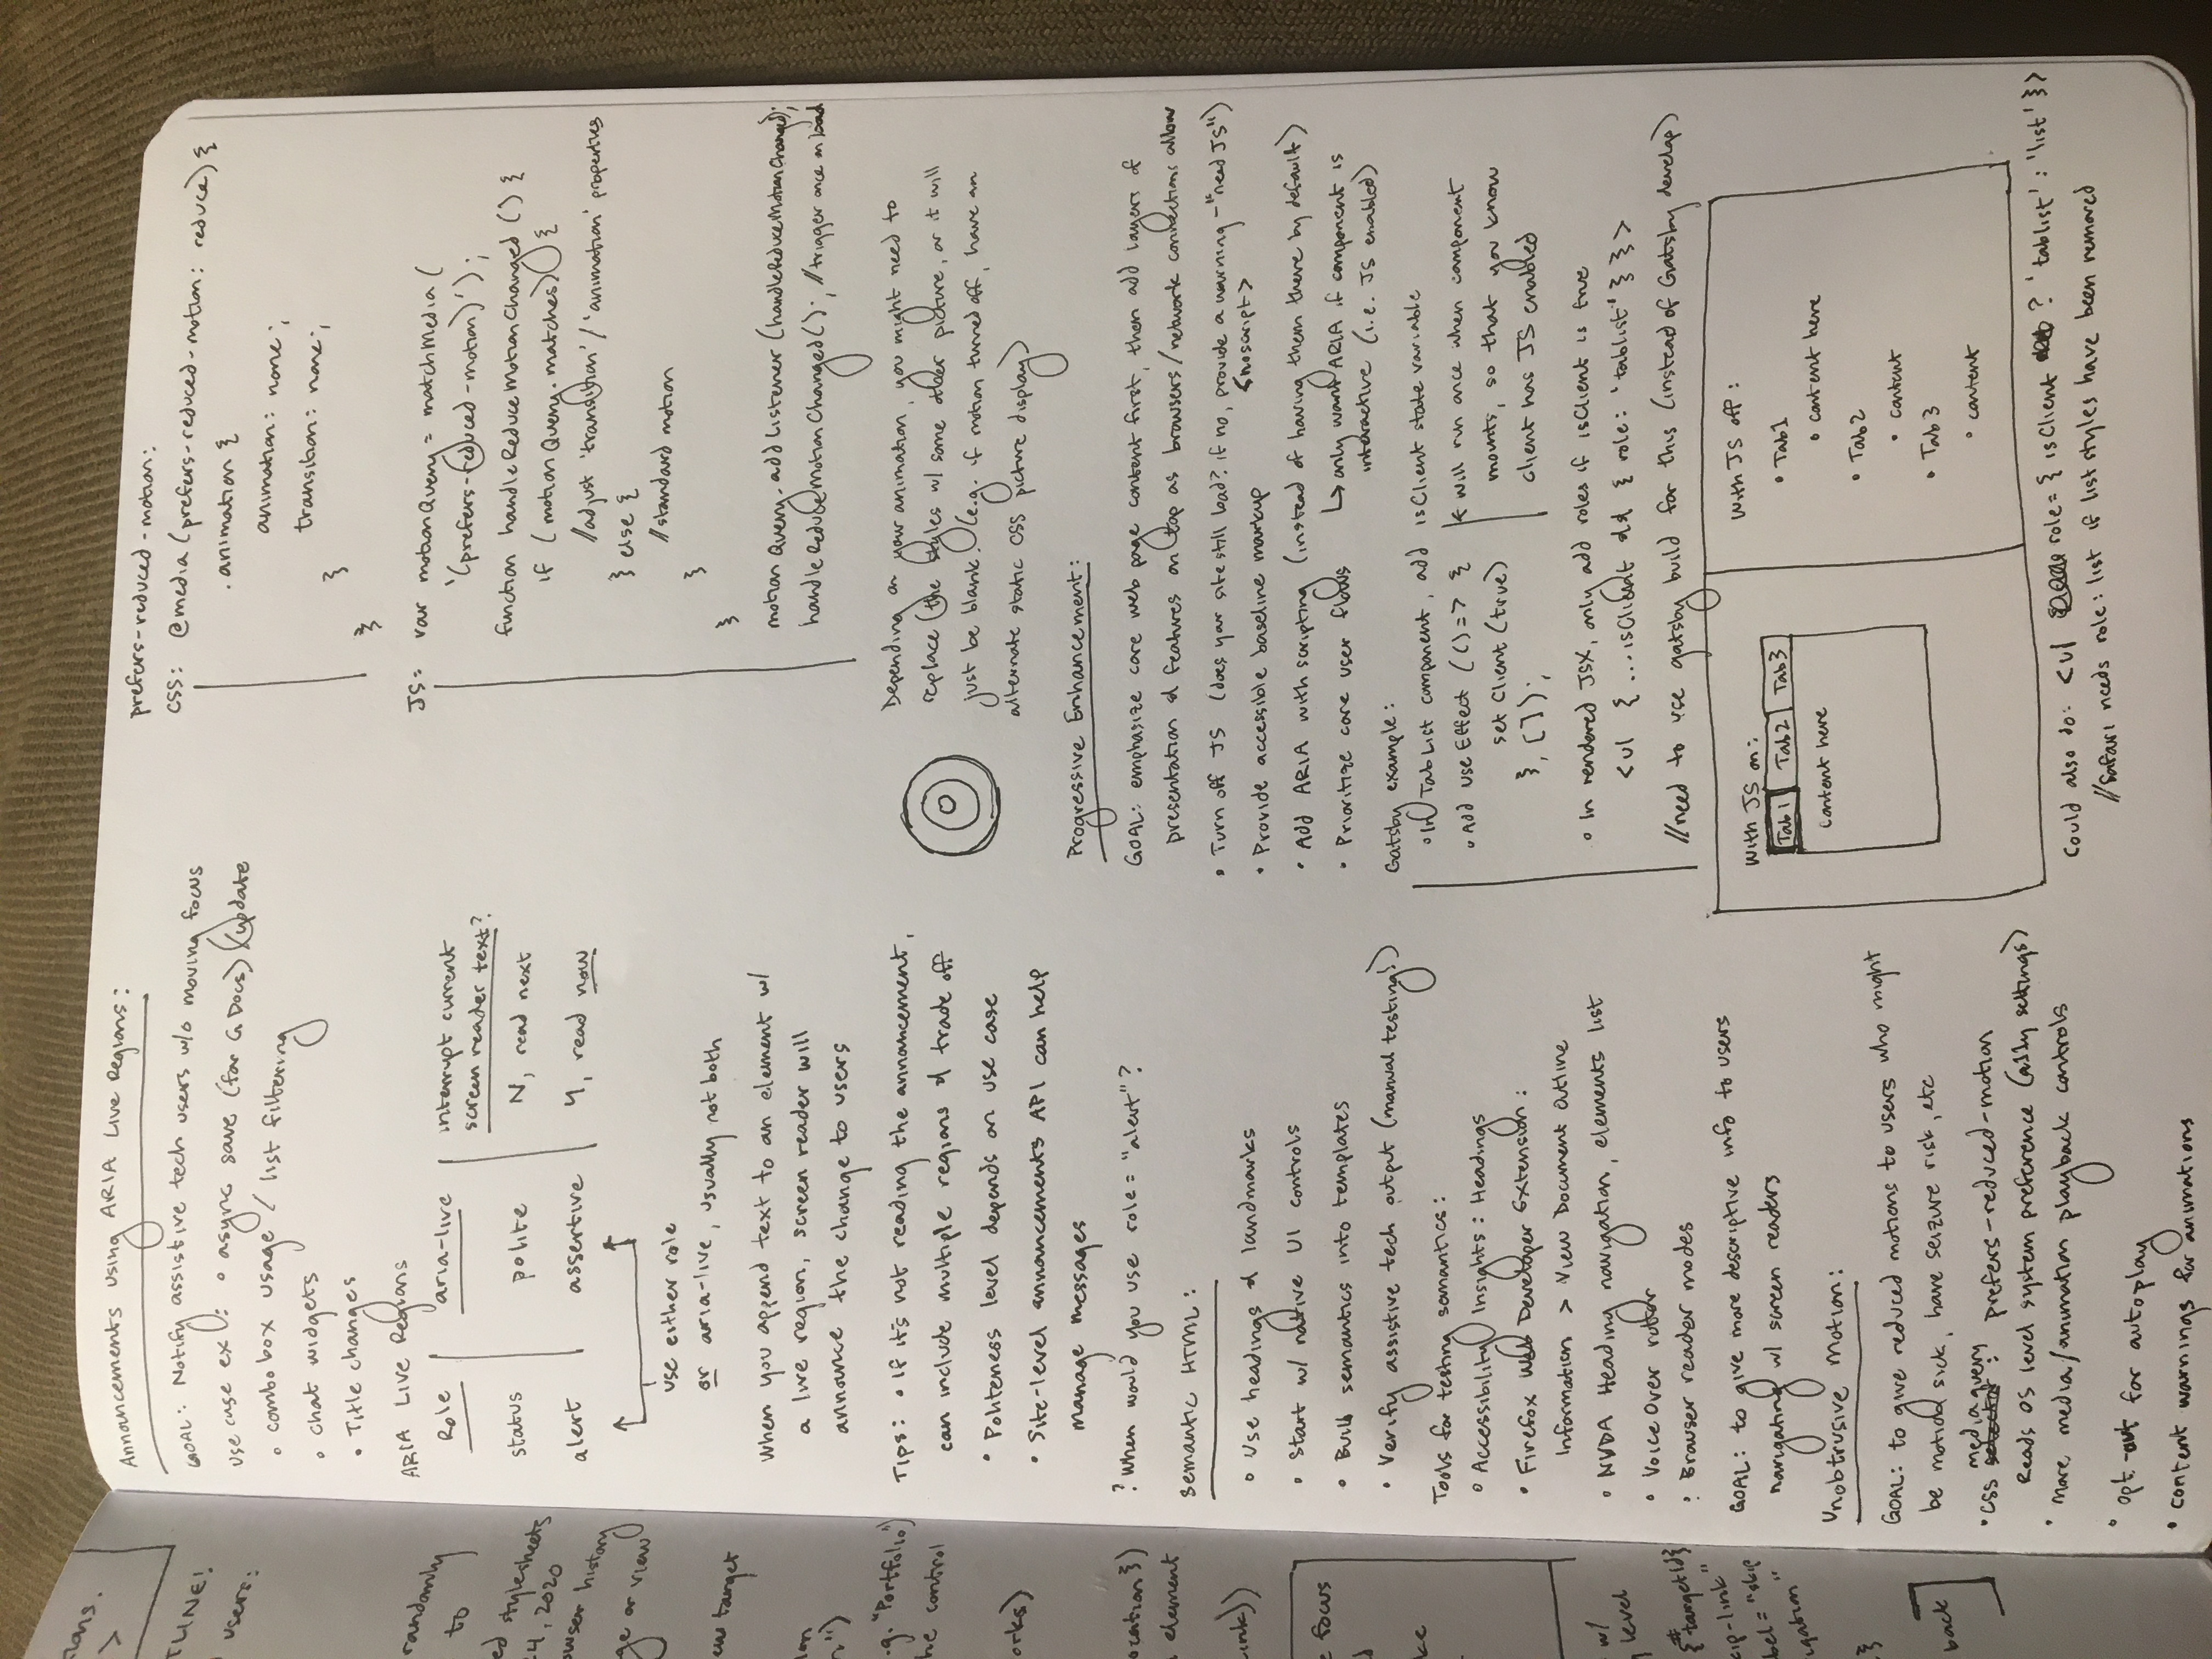 Announcements using ARIA Live Regions:
GOAL: Notify assistive tech users w/o moving focus
use case ex: • async save (for G Docs) / update
• combo box usage / list filtering
• chat widgets
• Title changes
ARIA Live Regions
Role | aria-live | interrupt current
screen reader text?
status | polite | N, read next
alert | assertive | Y, read now
use either role
or aria-live, usually not both
When you append text to an element w/
a live region, screen reader will
announce the change to users
Tips: • If it's not reading the announcement,
can include multiple regions & trade off
• Politeness level depends on use case
• Site-level announcements API can help
manage messages
? When would you use role = "alert"?
Semantic HTML:
• Use headings & landmarks
• Start w/ native UI controls
• Build semantics into templates
• Verify assistive tech output (manual testing!)
Tools for testing semantics:
• Accessibility Insights: Headings
• Firefox Web Developer Extension:
Information > View Document Outline
• NVDA Heading navigation, elements list
• VoiceOver rotor
• Browser reader modes
GOAL: to give more descriptive info to users
navigating w/ screen readers
Unobtrusive Motion:
GOAL: to give reduced motions to users who might
be motion sick, have seizure risk, etc
• CSS media query: prefers-reduced-motion
Reads OS level system preference (a11y settings)
• More media/animation playback controls
• opt-out for autoplay
• content warnings for animations
prefers-reduced-motion:
CSS: @media (prefers-reduced-motion: reduce) {
.animation {
animation: none;
transition: none;
}
}
JS: var motionQuery = matchMedia (
'(prefers-reduced-motion)');
function handleReduceMotionChanged () {
if (motionQuery.matches) {
//adjust 'transition' / 'animation' properties
} else {
//standard motion
}
}
motionQuery.addListener (handleReduceMotionChanged);
handleReduceMotionChanged(); //trigger once on load
Depending on your animation, you might need to
replace the styles w/ some other picture, or it will
just be blank. (e.g. if motion turned off, have an
alternate static CSS picture display)
Progressive Enhancement:
GOAL: emphasize core web page content first, then add layers of
presentation & features on top as browsers/network connections allow
• Turn off JS (does your site still load? if no, provide a warning - "need JS")
<noscript>
• Provide accessible baseline markup
• Add ARIA with scripting (instead of having them there by default)
• Prioritize core user flows ↳ only want ARIA if component is
interactive (i.e. JS enabled)
Gatsby example:
• In TabList component, add isClient state variable
• Add useEffect (() => { ← will run once when component
setClient (true) mounts, so that you know
}, []); client has JS enabled
• In rendered JSX, only add roles if isClient is true
<ul {...isClient && { role: 'tablist' } }>
//need to use gatsby build for this (instead of Gatsby develop)
With JS on:
Tab1 Tab2 Tab3
Content here
With JS off:
• Tab1
• content here
• Tab2
• content
• Tab3
• content
Could also do: <ul role = { isClient ? 'tablist' : 'list' }>
//Safari needs role: list if list styles have been removed
>
users:
randomly
to
stylesheets
, 2020
history
or view
target
.g. "Portfolio")
control
element
focus
w/
level
{#targetId}
back